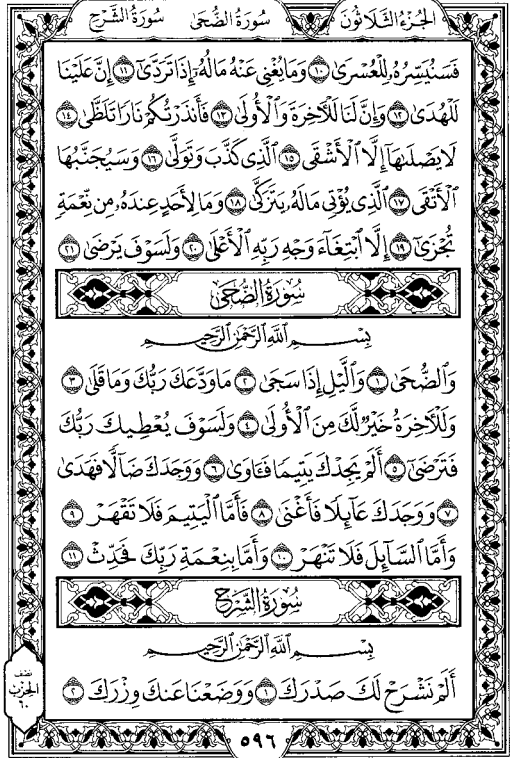 الجُزْءُ الثَّلَاثُونَ سُورَةُ الضُّحَى سُورَةُ الشَّرْحِ
فَسَنُيَسِّرُهُۥ لِلْعُسْرَىٰ ١٠ وَمَا يُغْنِى عَنْهُ مَالُهُۥٓ إِذَا تَرَدَّىٰٓ ١١ إِنَّ عَلَيْنَا
لَلْهُدَىٰ ١٢ وَإِنَّ لَنَا لَلْـَٔاخِرَةَ وَٱلْأُولَىٰ ١٣ فَأَنذَرْتُكُمْ نَارًا تَلَظَّىٰ ١٤
لَا يَصْلَىٰهَآ إِلَّا ٱلْأَشْقَى ١٥ ٱلَّذِى كَذَّبَ وَتَوَلَّىٰ ١٦ وَسَيُجَنَّبُهَا
ٱلْأَتْقَى ١٧ ٱلَّذِى يُؤْتِى مَالَهُۥ يَتَزَكَّىٰ ١٨ وَمَا لِأَحَدٍ عِندَهُۥ مِن نِّعْمَةٍ
تُجْزَىٰٓ ١٩ إِلَّا ٱبْتِغَآءَ وَجْهِ رَبِّهِ ٱلْأَعْلَىٰ ٢٠ وَلَسَوْفَ يَرْضَىٰ ٢١
سُورَةُ الضُّحَى
بِسْمِ ٱللَّهِ ٱلرَّحْمَٰنِ ٱلرَّحِيمِ
وَٱلضُّحَىٰ ١ وَٱلَّيْلِ إِذَا سَجَىٰ ٢ مَا وَدَّعَكَ رَبُّكَ وَمَا قَلَىٰ ٣
وَلَلْـَٔاخِرَةُ خَيْرٌ لَّكَ مِنَ ٱلْأُولَىٰ ٤ وَلَسَوْفَ يُعْطِيكَ رَبُّكَ
فَتَرْضَىٰٓ ٥ أَلَمْ يَجِدْكَ يَتِيمًا فَـَٔاوَىٰ ٦ وَوَجَدَكَ ضَآلًّا فَهَدَىٰ
٧ وَوَجَدَكَ عَآئِلًا فَأَغْنَىٰ ٨ فَأَمَّا ٱلْيَتِيمَ فَلَا تَقْهَرْ ٩
وَأَمَّا ٱلسَّآئِلَ فَلَا تَنْهَرْ ١٠ وَأَمَّا بِنِعْمَةِ رَبِّكَ فَحَدِّثْ ١١
سُورَةُ الشَّرْحِ
بِسْمِ ٱللَّهِ ٱلرَّحْمَٰنِ ٱلرَّحِيمِ
أَلَمْ نَشْرَحْ لَكَ صَدْرَكَ ١ وَوَضَعْنَا عَنكَ وِزْرَكَ ٢
نصف
الحزب
٦٠
٥٩٦